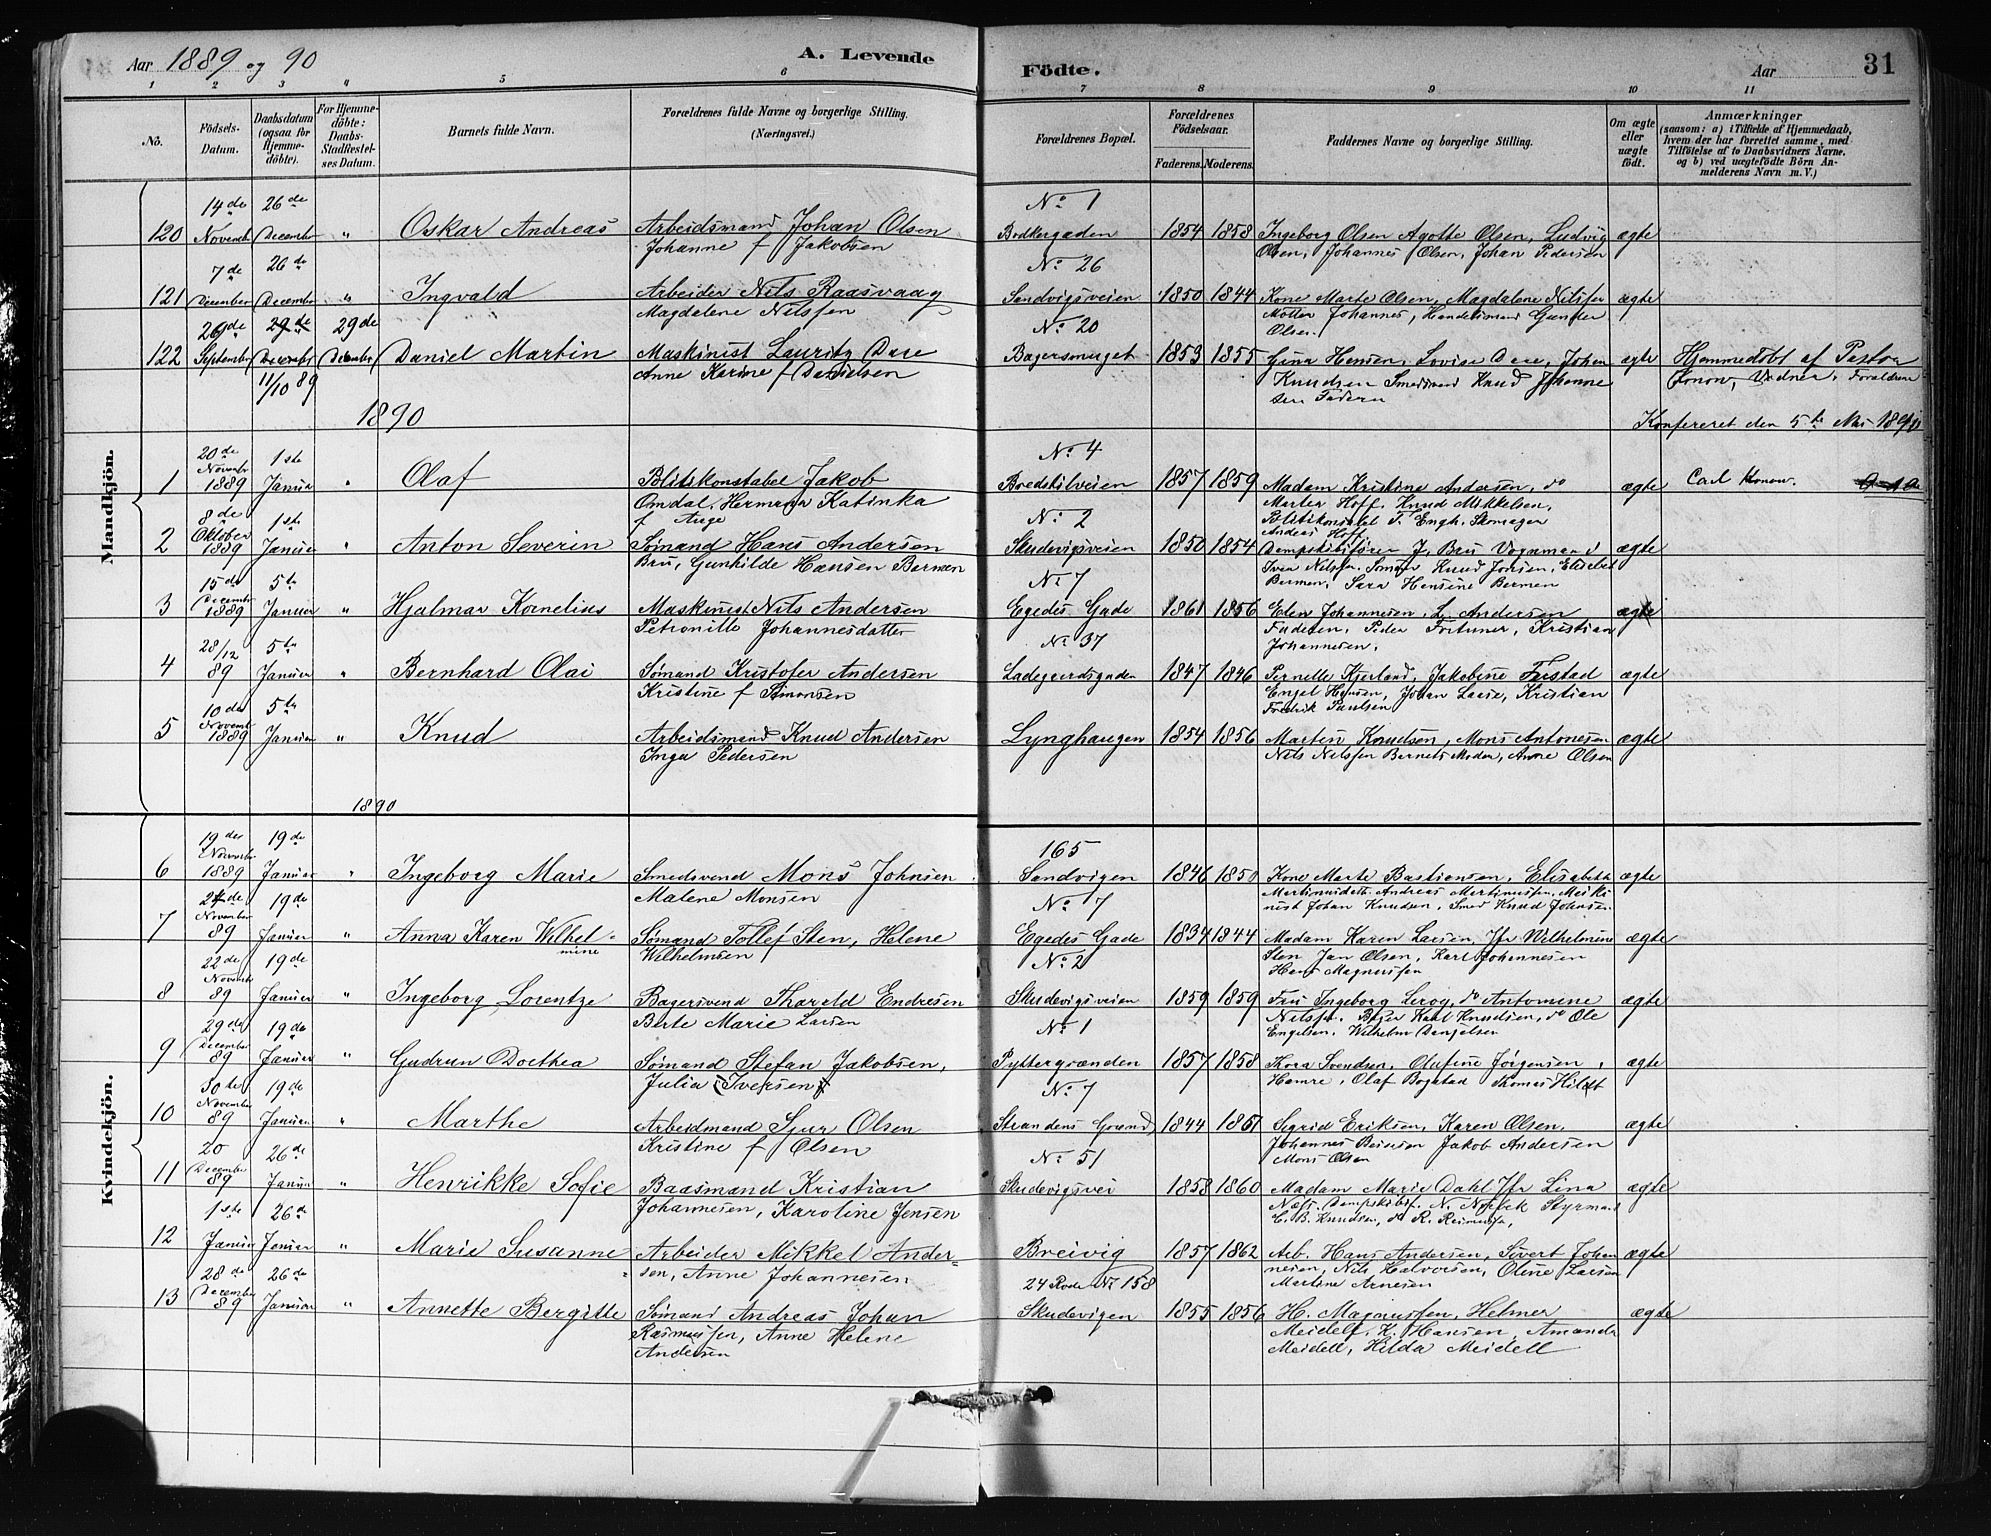 Aar 1889 og 90
A. Levende
Födte.
Aar
31
1 2 3 4 5 6 7 8 9 10 11
No.
Födsels-Datum.
Daabsdatum (ogsaa for Hjemmedöbte).
For Hjemmedöbte: Daabs-Stadfestelses Datum.
Barnets fulde Navn.
Forældrenes fulde Navne og borgerlige Stilling. (Næringsvei.)
Forældrenes Bopæl.
Forældrenes Födselsaar.
Faderens. Moderens.
Faddernes Navne og borgerlige Stilling.
Om ægte eller uægte födt.
Anmærkninger
(saasom: a) i Tilfælde af Hjemmedaab, hvem der har forrettet samme, med Tilföielse af to Daabsvidners Navne, og b) ved uægtefödte Börn Anmelderens Navn m. V.)
14de 26de No 1
120 Novembr December " Oskar Andreas Arbeidsmand Johan Olsen Bødkergaden 1854 1858 Ingeborg Olsen Agotte Olsen, Ludvig ægte
Johanne f Jakobsen Olsen, Johannes Olsen, Johan Pedersen
7de 26de No 26
121 December December " Ingvald Arbeider Nils Raasvaag Sandvigsveien 1850 1844 Kone Marte Olsen, Magdalene Nilsen ægte
Magdalene Nilssen Johannes, Handelsmand Gunder Olsen.
26de 29de 29de No 20
122 September December December Daniel Martin Maskinist Lauritz Daae Bagersmuget 1853 1855 Gina Hansen, Lovise Daae, Johan ægte Hjemmedøbt af Pastor
11/10 89 Anne Karine f Danielsen Knudsen Smedsvend Knud Johannesen Faderen Konow, Vidner, Forældrene
1890
Konfereret den 5te Mai 1890
Carl Konow.
Mandkjön.
20de 1ste No 4
1 Novembr 1889 Januar " Olaf Politikonstabel Jakob Bredstilveien 1857 1859 Madam Kristine Andersen, do ægte
Omdal, Hermana Katinka f Auge Marta Hoff. Knud Mikkelsen, Politikonstabel T. Engh. Skomager Andreas Hoff
8de 1ste No 2
2 Oktober 1889 Januar " Anton Severin Sømand Hans Andersen Skudevigsveien 1850 1854 Dampskibsfører J. Bru Vognmand ægte
Bru, Gunhilde Hansen Berman Svea Nilsen. Sømand Knud Jonsen, Elisabet Bermen, Sara Hensine Bermen
15de 5te No 7
3 December 1889 Januar " Hjalmar Kornelius Maskinist Nils Andersen Egedes Gade 1861 1856 Elen Johannesen, L. Andersen ægte
Petronille Johannesdatter Faderen, Peder Fortuner, Kristian Johannesen.
28/12 5te No 37
4 89 Januar " Bernhard Olai Sømand Kristofer Andersen Ladegaardsgaden 1847 1846 Pernille Kjerland, Jakobine Fristad ægte
Kristine f Simonsen Engel Hansen, Johan Laue, Kristian Fredrik Paulsen
10de 5te
5 Novembr 1889 Januar " Knud Arbeidsmand Knud Andersen Lynghaugen 1854 1856 Martin Knudsen, Mons Antonesen ægte
Inga Pedersen Nils Nilssen Barnets Moder, Anne Olsen
1890
Kvindekjön.
19de 19de 165
6 November 1889 Januar " Ingeborg Marie Smedsvend Mons Johnsen Sandvigen 1846 1850 Kone Marte Bastiansen, Elisabeth ægte
Malene Monsen Martinusdatt. Andreas Martinussen, Maskinist Johan Knudsen, Smed Knud Johnsen
24de 19de No 7
7 November 89 Januar " Anna Karen Wilhelmine Sømand Tollef Sten, Helene Egedes Gade 1834 1844 Madam Karen Larsen, Jfr Wilhelmine ægte
Wilhelmsen Sten Jan Olsen, Karl Johannesen Hans Magnussen
22de 19de No 2
8 Novembr 89 Januar " Ingeborg Lorentze Bagersvend Tharald Endresen Skudevigsveien 1859 1859 Fru Ingeborg Leroy, do Antomine ægte
Berte Marie Larsen Nilssen. Bager Karl Knudsen, do Ole Engelsen, Wilhelm Danielsen
29de 19de No 1
9 December 89 Januar " Gudrun Dorthea Sømand Stefan Jakobsen, Pyttergrænden 1857 1858 Kora Svendsen, Olufine Jørgensen, ægte
Julia Iversen Hamre, Olaf Bogstad Thomas Hildt
30te 19de No 7
10 November 89 Januar " Marthe Arbeidmand Sjur Olsen Strandens Grænd 1844 1851 Sigrid Eriksen, Karen Olsen, ægte
Kristine f Olsen Johannes Jakob Andersen Mons Olsen
20 26de No 51
11 December 89 Januar " Henrikke Sofie Baasmand Kristian Skudevigsvei 1858 1860 Madam Marie Dahl Jfr Lina ægte
Johannesen, Karoline Jensen Næss. Dampskibsf. N. Styrmand C. B. Knudsen, do R. Rasmussen,
1ste 26de
12 Januar Januar " Marie Susanne Arbeider Mikkel Andersen, Breivig 1857 1862 Arb. Hans Andersen, Sivert Johannesen, ægte
Anne Johannesen Nils Halvorsen, Oline Larsen Martine Arnesen
28de 26de 24 Rode No 158
13 December 89 Januar " Annette Bergitte Sømand Andreas Johan Skudevigen 1855 1856 H. Magnussen, Helmer ægte
Rasmussen, Anne Helene Andersen Meidell, K. Hansen, Amanda Meidell, Hilda Meidell